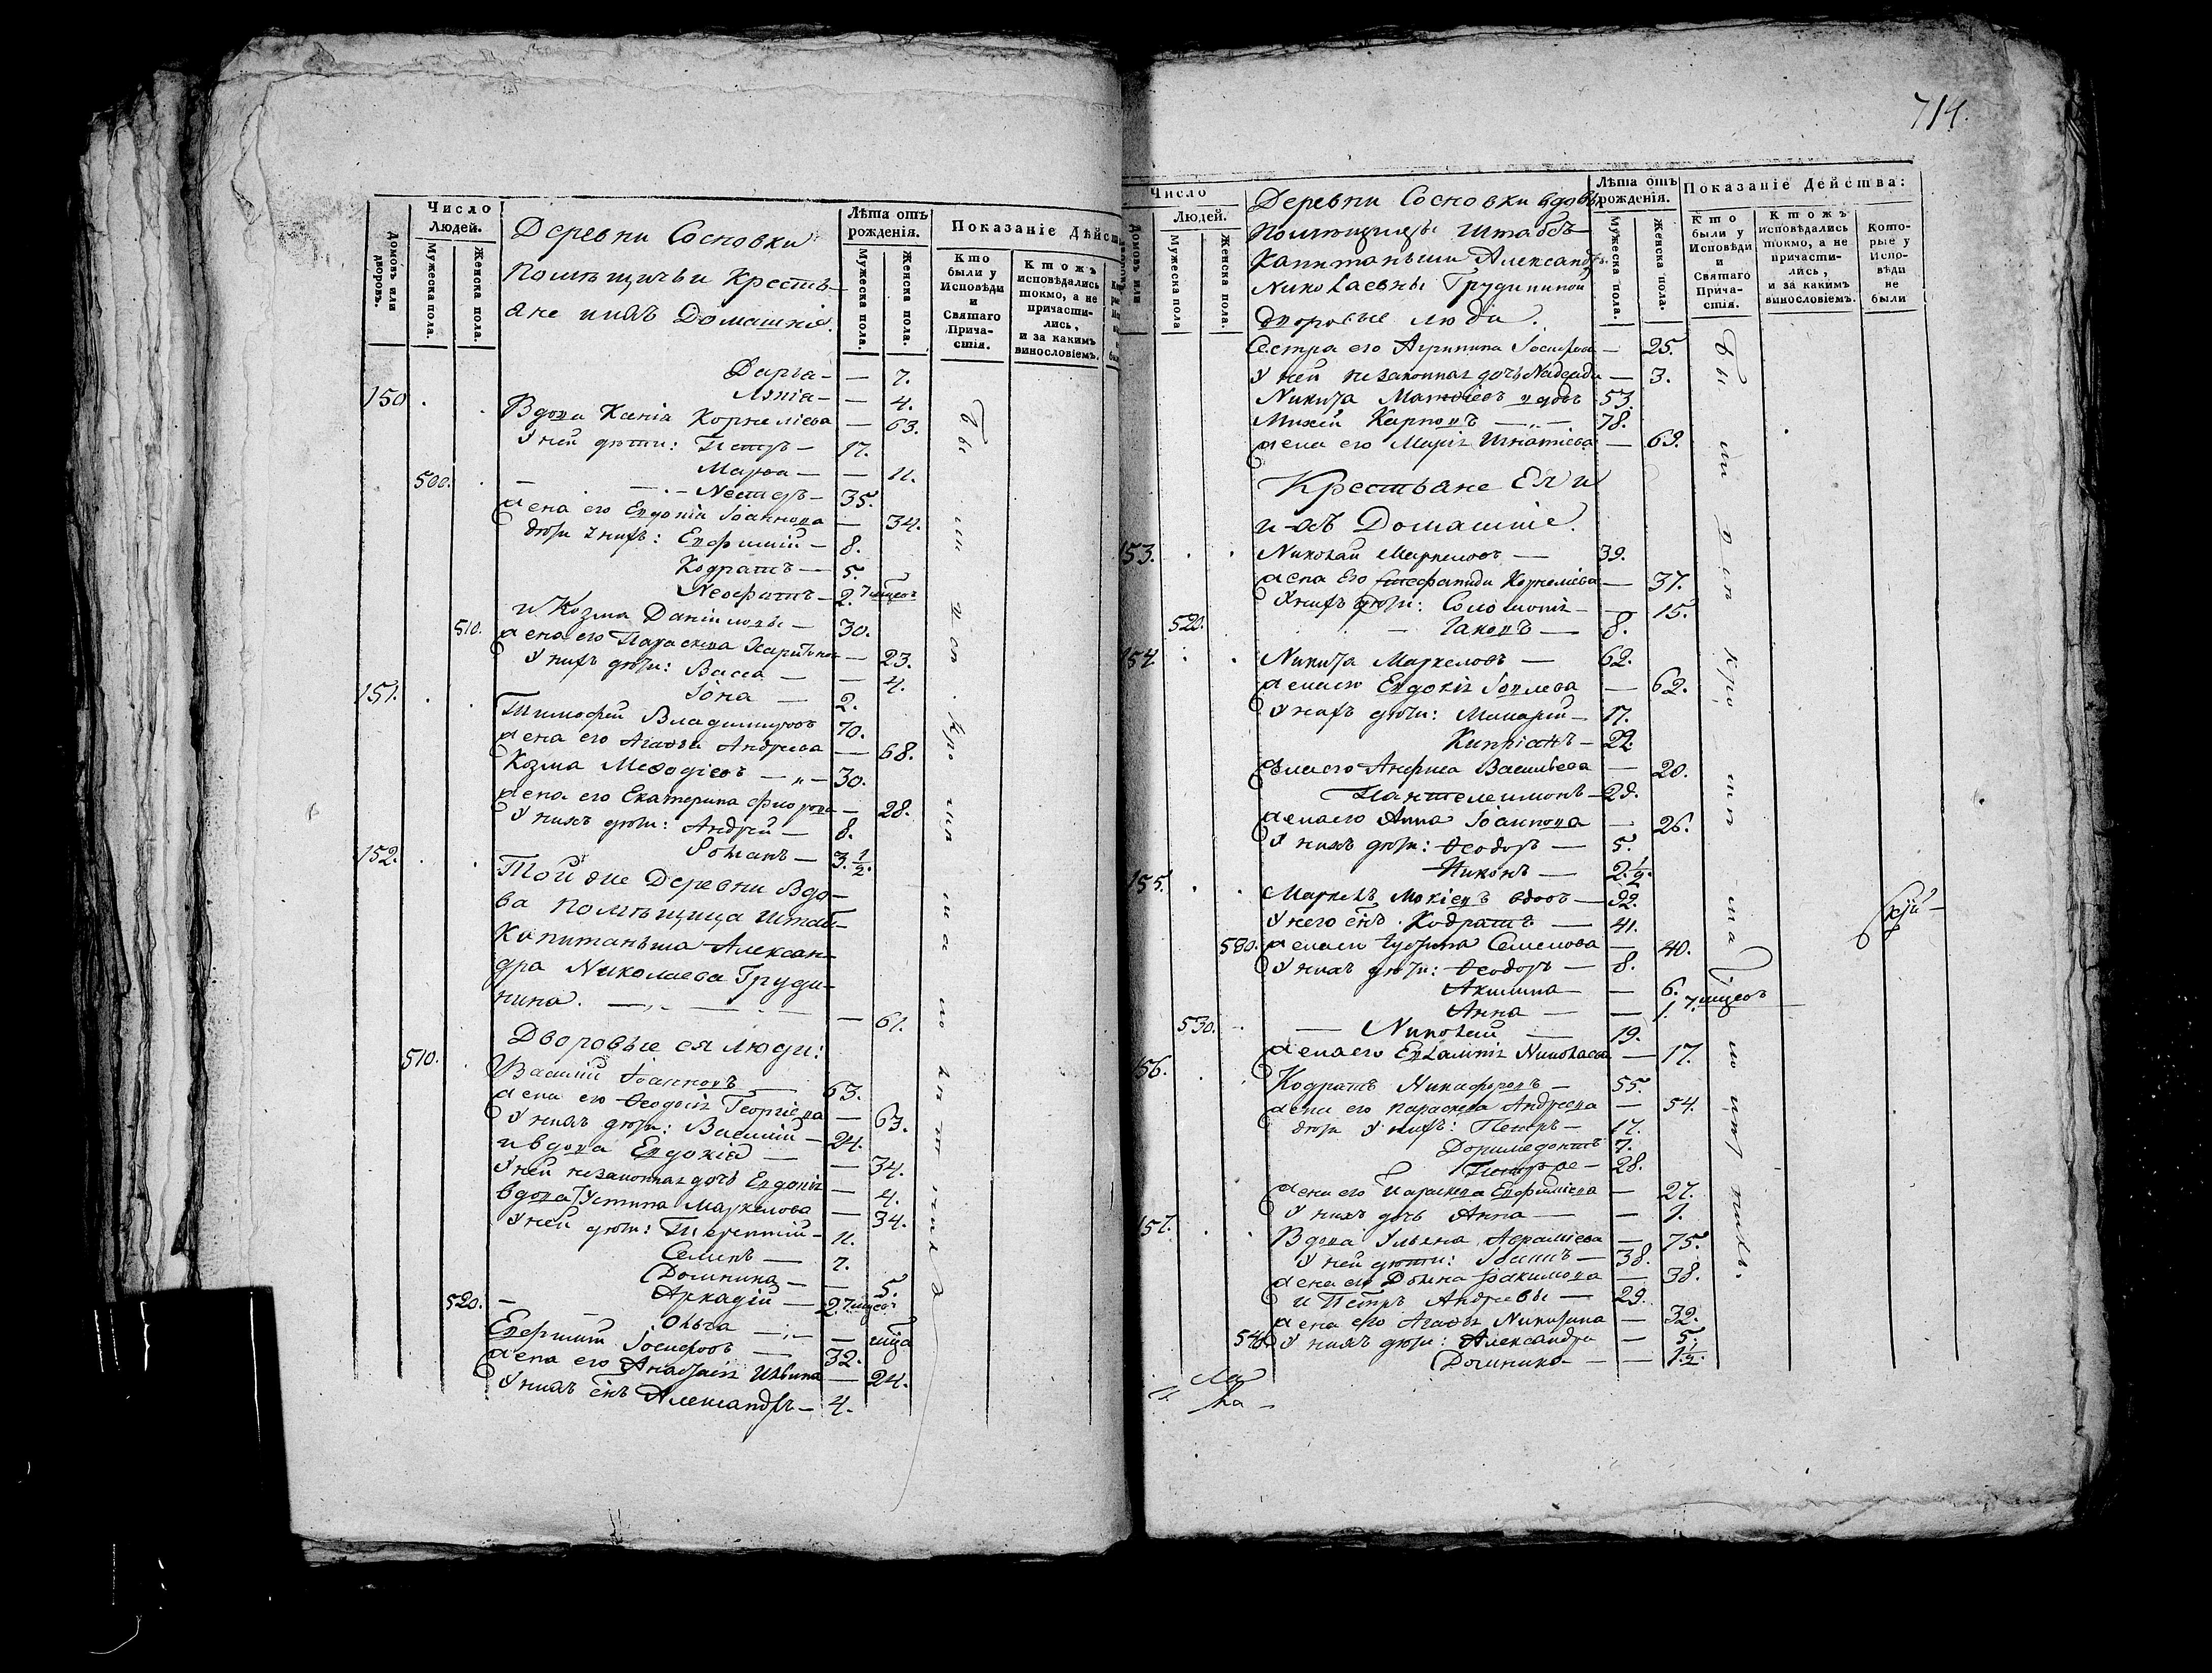 Число
Людей.
Домовъ или дворовъ.
Мужеска пола.
Женска пола.
Деревни Сосновки
помѣщичьи Крестьяне
и ихъ Домашніе.
Лѣта отъ рожденія.
Мужеска пола.
Женска пола.
Показаніе Дѣйст
Кто были у Исповѣди и Святаго Причастія.
Ктожъ исповѣдались токмо, а не причастились, и за какимъ винословіемъ.
Дарья — — 7.
— — 4.
150. Вдова Ксенія Корнеліева — 63.
У ней дѣти: Петръ — 17.
Марѳа — — 11.
500. — Несторъ — 35.
жена его Евдокія Іоаннова — 34.
дѣти у нихъ: Евфимій — 8.
Кодратъ — 5.
Неофитъ — 2. 7 мцовъ
и Козма Даніиловы — 30.
510. жена его Параскева — 23.
У нихъ дѣти: Васса — — 4.
Іона — 2.
151. Тимофей Владимировъ 70.
жена его Агаѳья Андреева — 68.
Козма Меѳодіевъ — 30.
жена его Екатерина — 28.
У нихъ дѣти: Андрей — 8.
Романъ — 3. 1/2.
152. Той же Деревни Вдова
помѣщица Штабъ
Капитанша Александра
Николаева Грудинина. — 61.
Дворовые ея люди:
510. Василій Іоанновъ — 63.
жена его Ѳеодосія Георгіева — 63.
У нихъ дѣти: Василій — 24.
и вдова Евдокія — — 34.
У ней незаконная дочь Евдокія — 4.
вдова Устина Маркелова — 34.
У ней дѣти: Терентій — 11.
Семенъ — 7.
Домника — — 5.
Аркадій — 2. 7 мцовъ
520. Ольга — —
Евфимій Іосифовъ — 32.
жена его Анастасія Ильина — 24.
У нихъ сынъ Александръ — 4.
714.
Число
Людей.
Домовъ или
Мужеска пола
Женска пола.
Деревни Сосновки вдовы
помѣщицы Штабсъ
Капитанши Александры
Николаевны Грудининой
дворовые люди.
Лѣта отъ рожденія.
Мужеска пола.
Женска пола.
Показаніе Действа:
Кто были у Исповѣди и Святаго Причастія.
Ктожъ исповѣдались токмо, а не причастились, и за какимъ винословіемъ.
Которые у Исповѣди не были
Сестра его Агрипина Іосифова — 25.
У ней незаконная дочь Надежда — 3.
Никита Матвіевъ вдовъ 53.
Михей Карповъ — 78.
жена его Марія Игнатіева — 69.
Крестьяне Ея и
ихъ Домашніе.
153. Николай Маркеловъ — 39.
жена его Корнеліева — 37.
У нихъ дѣти: Соломонія — — 15.
520. — Іаковъ — 8.
154. Никита Маркеловъ — 62.
жена его Евдокія Іовлева — 62.
У нихъ дѣти: Макарій — 17.
Кипріанъ — 22.
жена его Анфиса Васильева — 20.
Пантелеимонъ — 29.
жена его Анна Іоаннова — 26.
У нихъ дѣти: Ѳеодоръ — 5.
Никонъ — 2. 1/2.
155. Маркелъ Мокіевъ вдовъ — 92.
У него сынъ Кодратъ — 41.
530. жена его Семенова — 40.
У нихъ дѣти: Ѳеодоръ — 8.
Акилина — — 6.
Анна — — 1. 7. мцовъ
530. — Николай — 19.
жена его Евлампія Николаева — 17.
156. Кодратъ Никифоровъ — 55.
жена его Параскева Андреева — 54.
дѣти у нихъ: Петръ — 17.
Доримедонтъ 7.
Петръ же — 28.
жена его Параскева Евфиміева — 27.
У нихъ дочь Анна — — 1.
157. Вдова Ульяна Авраміева — 75.
У ней дѣти: Іоаннъ — 38.
жена его Домна Іоакимова — 38.
и Петръ Андреевы — 29.
жена его Агаѳья Никитина — 32.
540 У нихъ дѣти: Александра — 5.
Домника — — 1. 1/2.